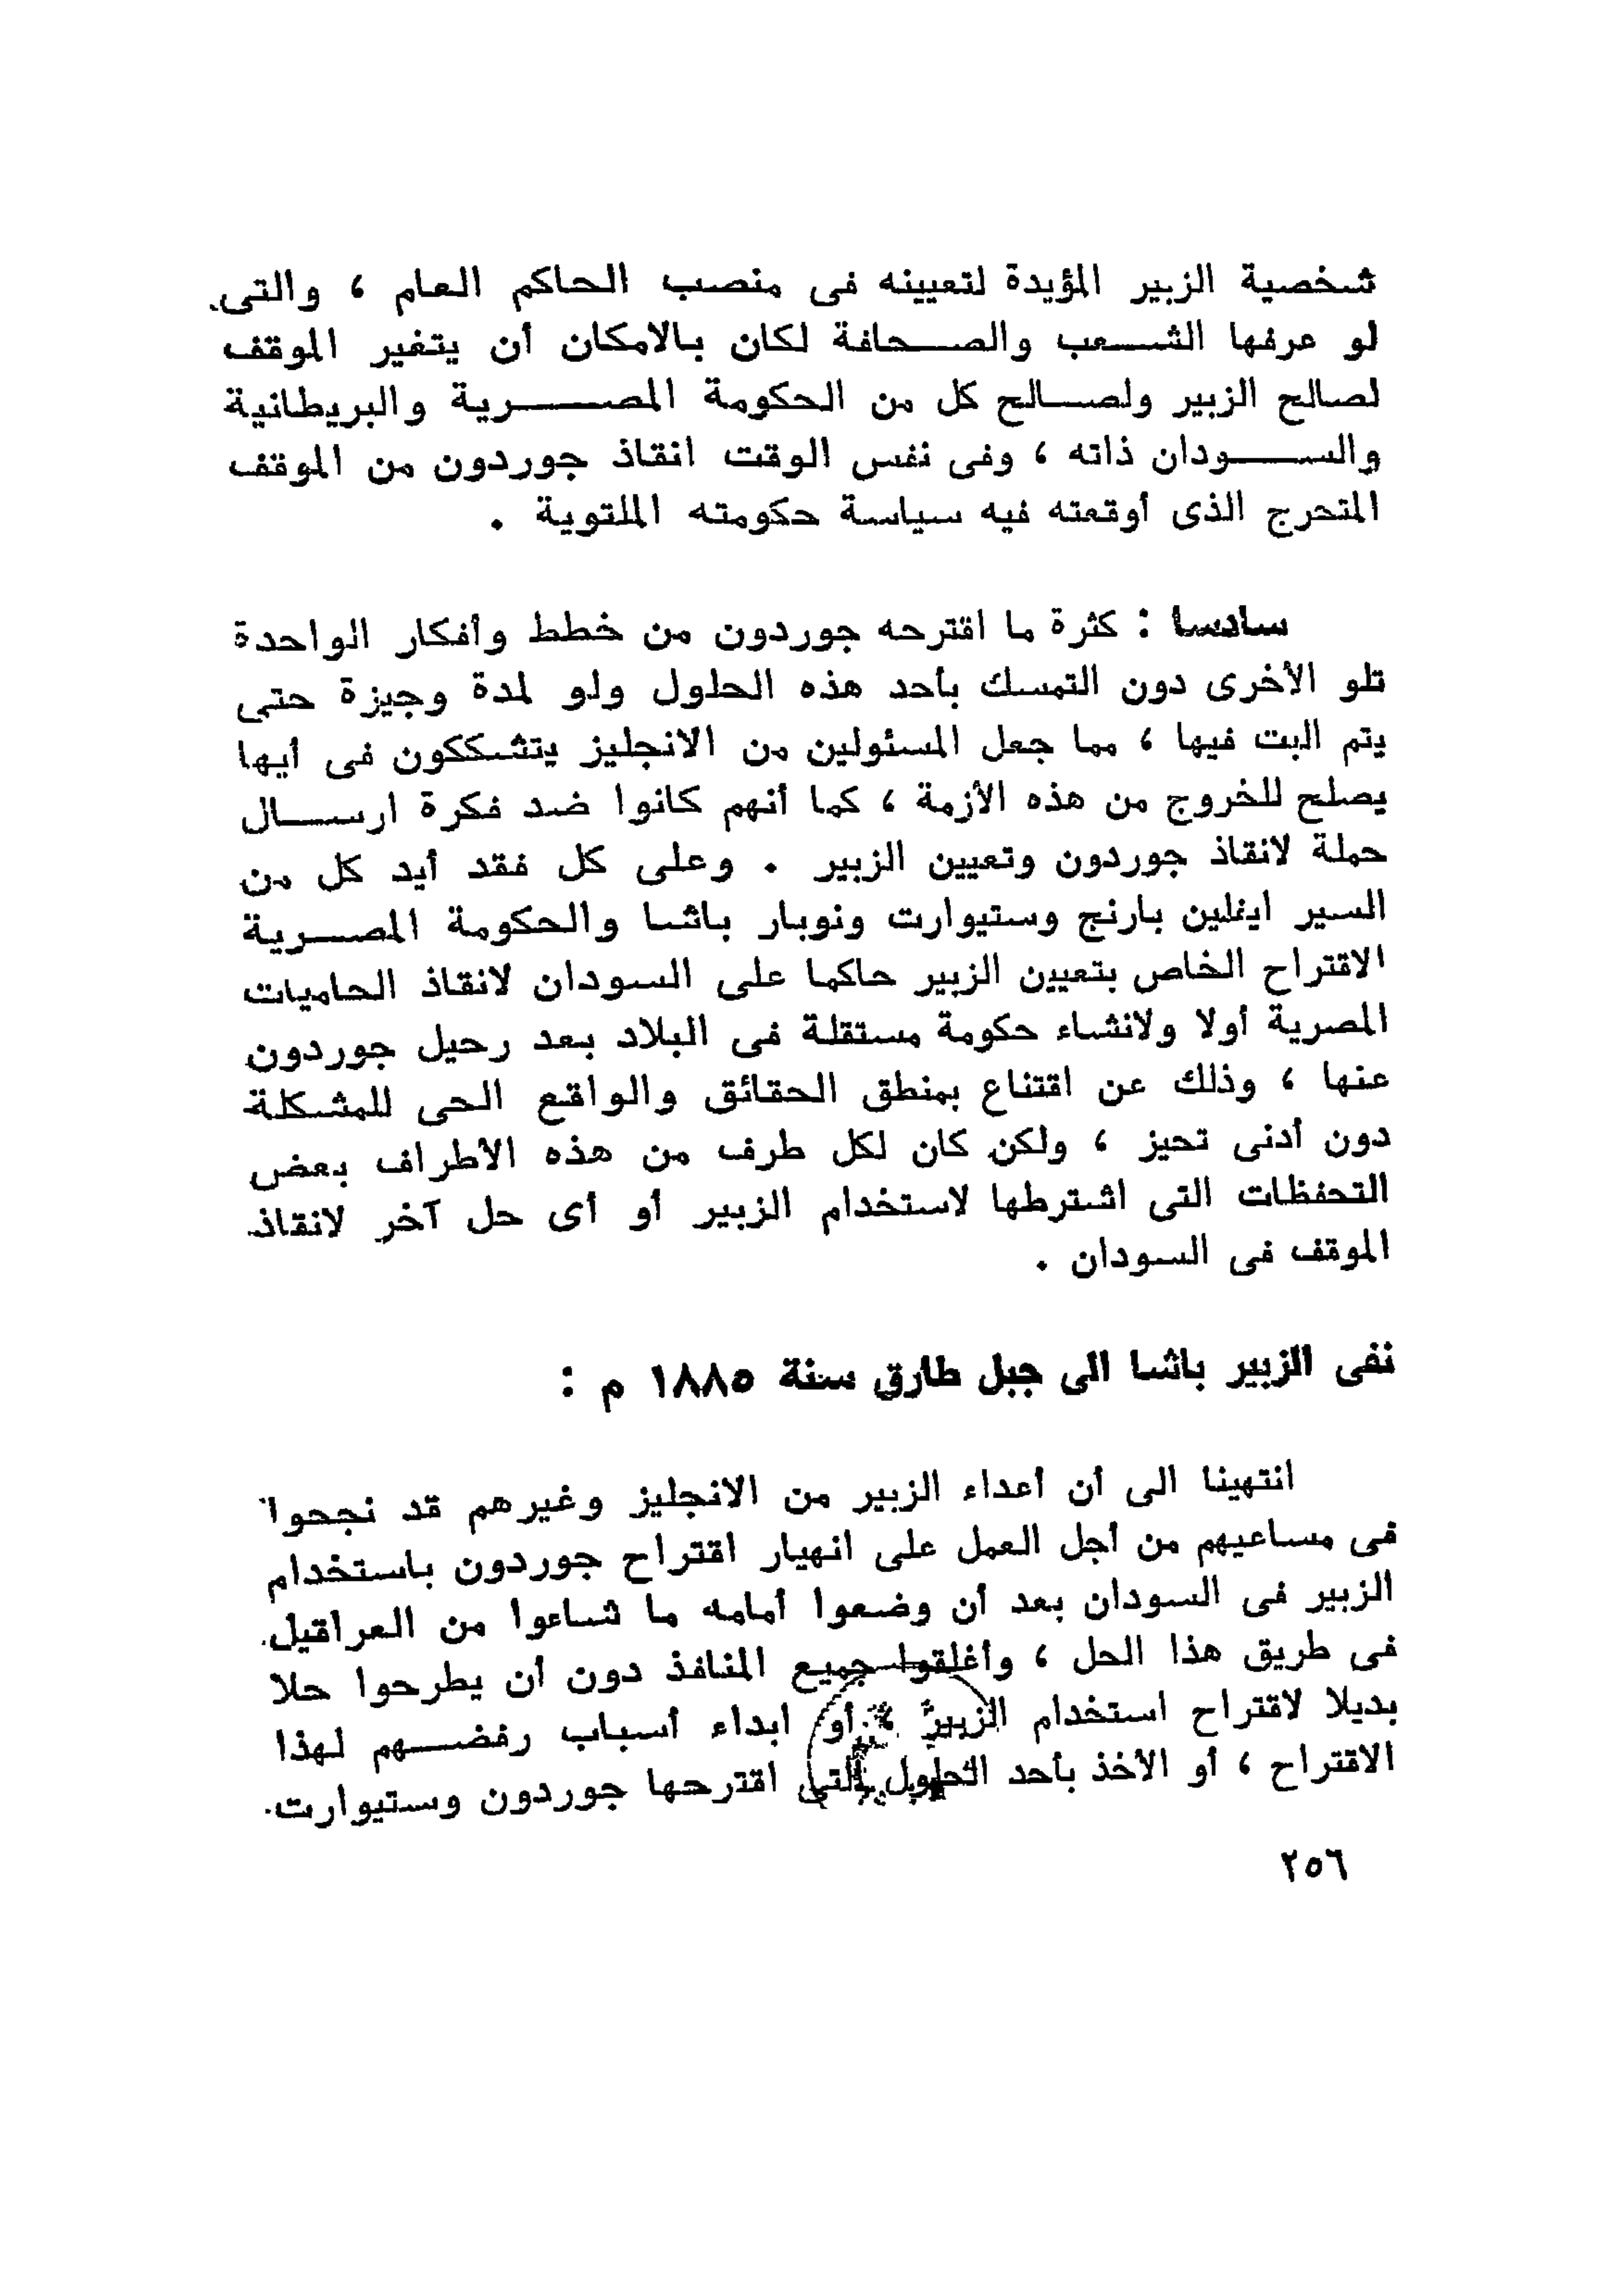 شخصية الزبير المؤيدة لتعيينه فى منصب الحاكم العام ، والتى
لو عرفها الشعب والصحافة لكان بالامكان أن يتغير الموقف
لصالح الزبير ولصالح كل من الحكومة المصرية والبريطانية
والسودان ذاته ، وفى نفس الوقت انقاذ جوردون من الموقف
المتحرج الذى أوقعته فيه سياسة حكومته الملتوية .
سادسا : كثرة ما اقترحه جوردون من خطط وأفكار الواحدة
تلو الأخرى دون التمسك بأحد هذه الحلول ولو لمدة وجيزة حتى
يتم البت فيها ، مما جعل المسئولين من الانجليز يتشككون فى أيها
يصلح للخروج من هذه الأزمة ، كما أنهم كانوا ضد فكرة ارسال
حملة لانقاذ جوردون وتعيين الزبير . وعلى كل فقد أيد كل من
السير ايفلين بارنج وستيوارت ونوبار باشا والحكومة المصرية
الاقتراح الخاص بتعيين الزبير حاكما على السودان لانقاذ الحاميات
المصرية أولا ولانشاء حكومة مستقلة فى البلاد بعد رحيل جوردون
عنها ، وذلك عن اقتناع بمنطق الحقائق والواقع الحى للمشكلة
دون أدنى تحيز ، ولكن كان لكل طرف من هذه الأطراف بعض
التحفظات التى اشترطها لاستخدام الزبير أو أى حل آخر لانقاذ
الموقف فى السودان .
نفى الزبير باشا الى جبل طارق سنة ١٨٨٥ م :
انتهينا الى أن أعداء الزبير من الانجليز وغيرهم قد نجحوا
فى مساعيهم من أجل العمل على انهيار اقتراح جوردون باستخدام
الزبير فى السودان بعد أن وضعوا أمامه ما شاءوا من العراقيل
فى طريق هذا الحل ، وأغلقوا جميع المنافذ دون أن يطرحوا حلا
بديلا لاقتراح استخدام الزبير ، أو ابداء أسباب رفضهم لهذا
الاقتراح ، أو الأخذ بأحد الحلول التى اقترحها جوردون وستيوارت
٢٥٦